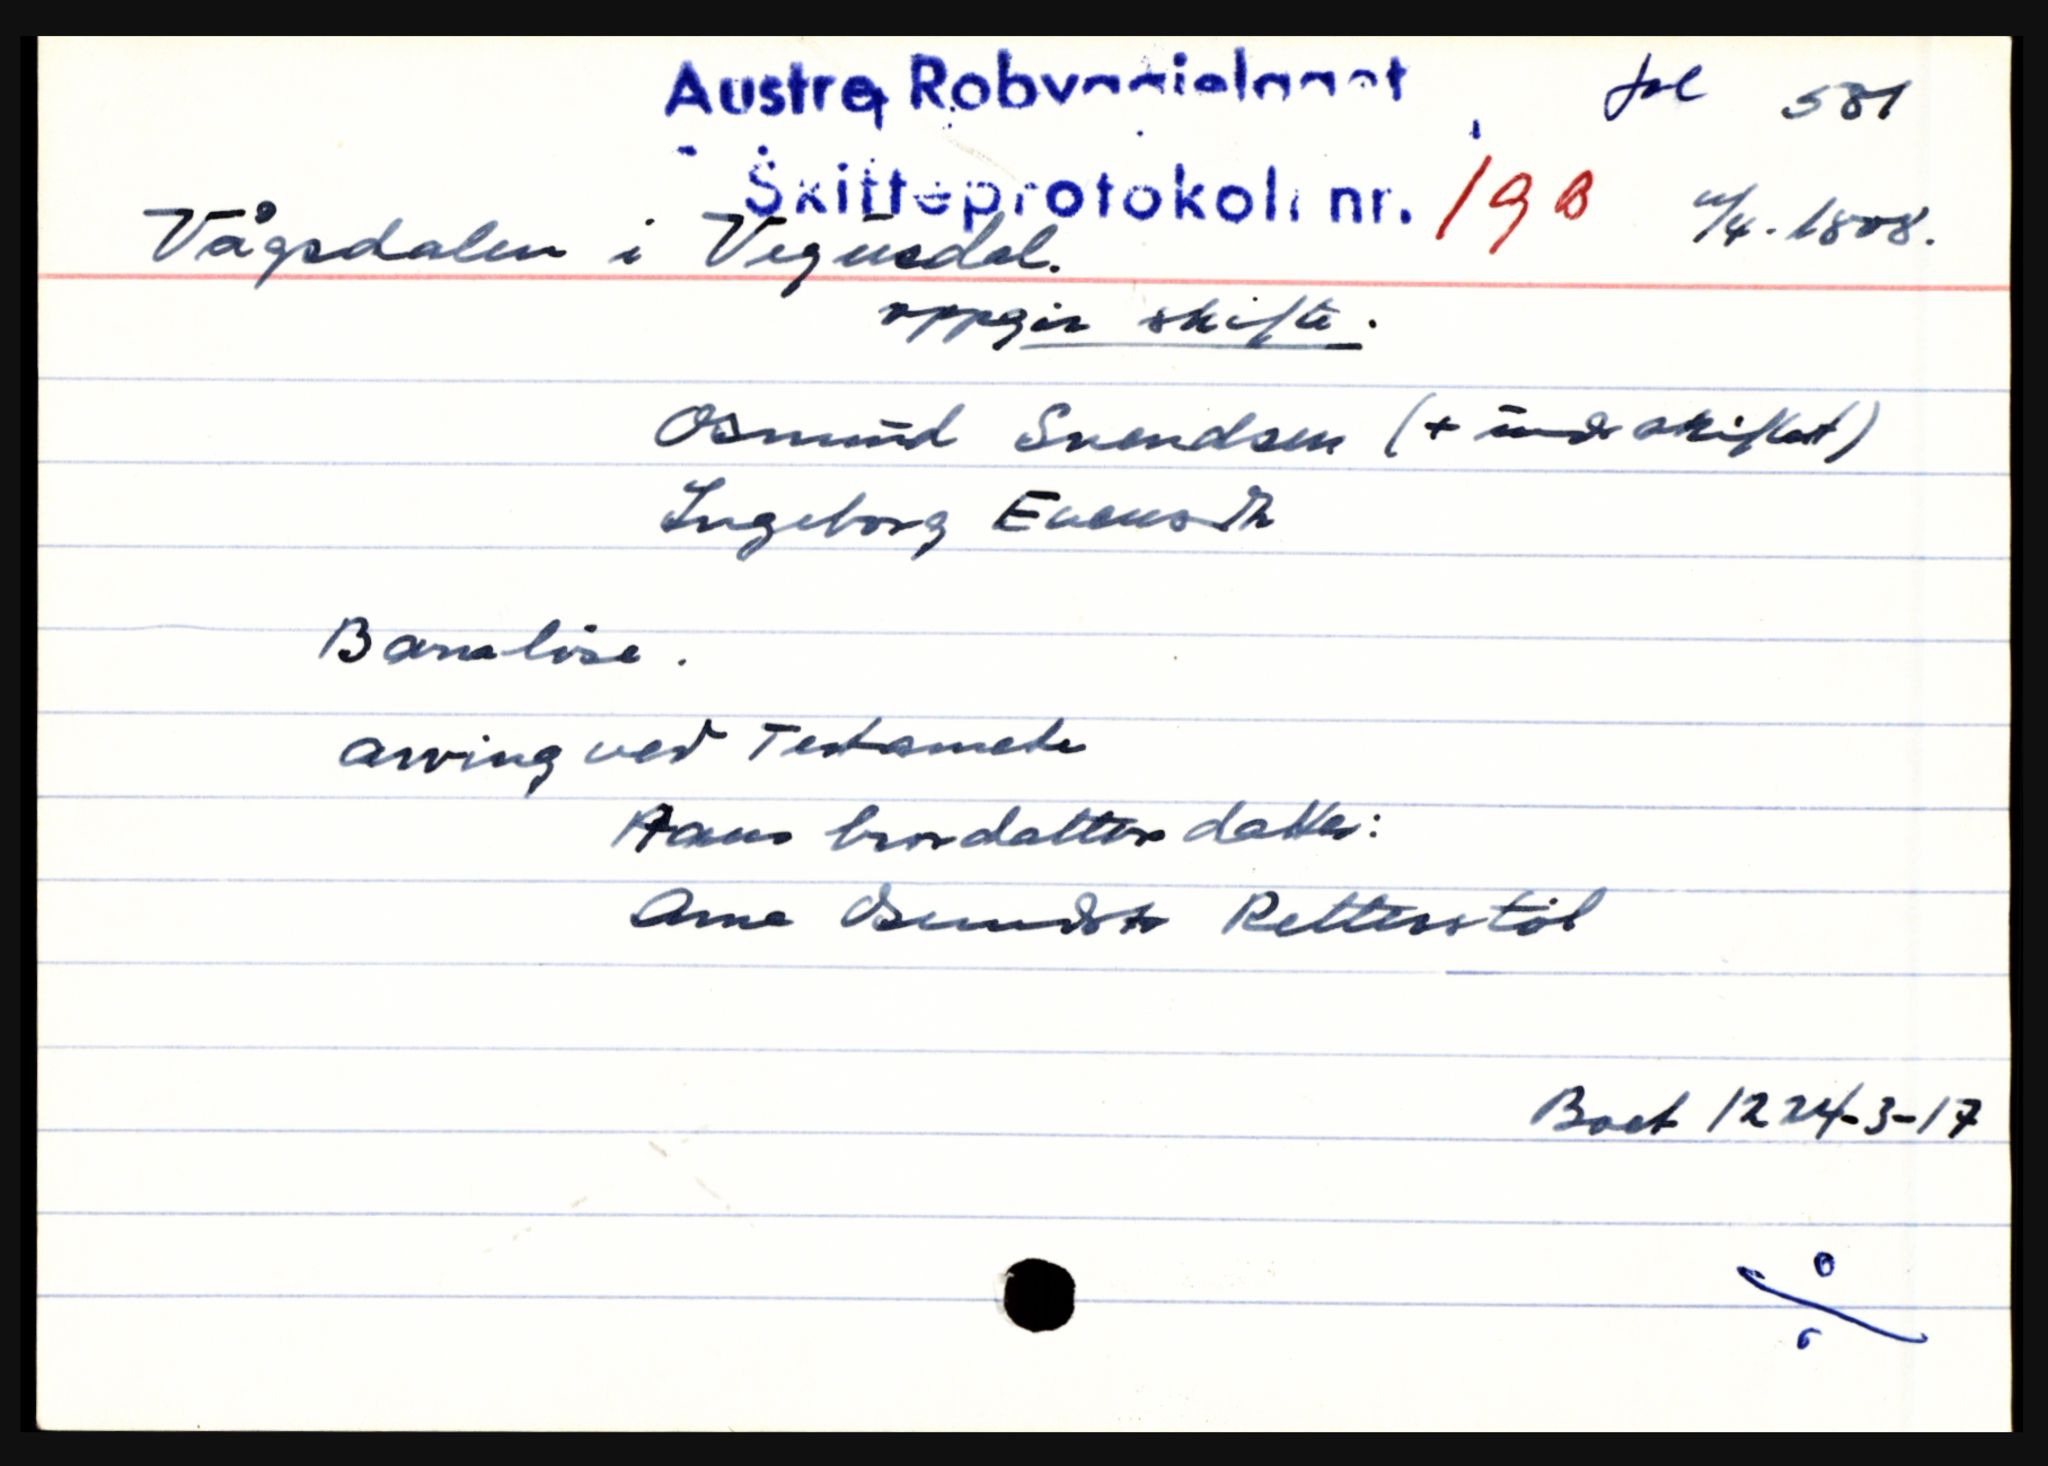 Austre Robyggjelaget fol 581
Skifteprotokoll nr. 19 B 11/4. 1808.
Vågsdalen i Vegusdal.
oppgir skifte.
Osmund Svendsen (+ under skiftet)
Ingeborg Evensdtr
Barnalöse.
arving ved Testamete
Hans brordatters datter:
Anna Osmundsdtr Retterstöl
Boet 1224-3-17
0
0